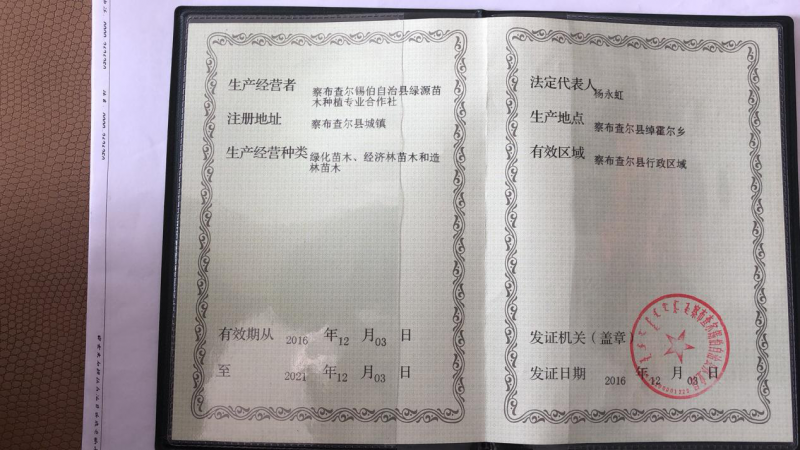 生产经营者 察布查尔锡伯自治县绿源苗
木种植专业合作社
注册地址 察布查尔县城镇
生产经营种类 绿化苗木、经济林苗木和造
林苗木
有效期从 2016 年 12 月 03 日
至 2021 年 12 月 03 日
法定代表人 杨永虹
生产地点 察布查尔县绰霍尔乡
有效区域 察布查尔县行政区域
发证机关(盖章
发证日期 2016 年 12 月 03 日